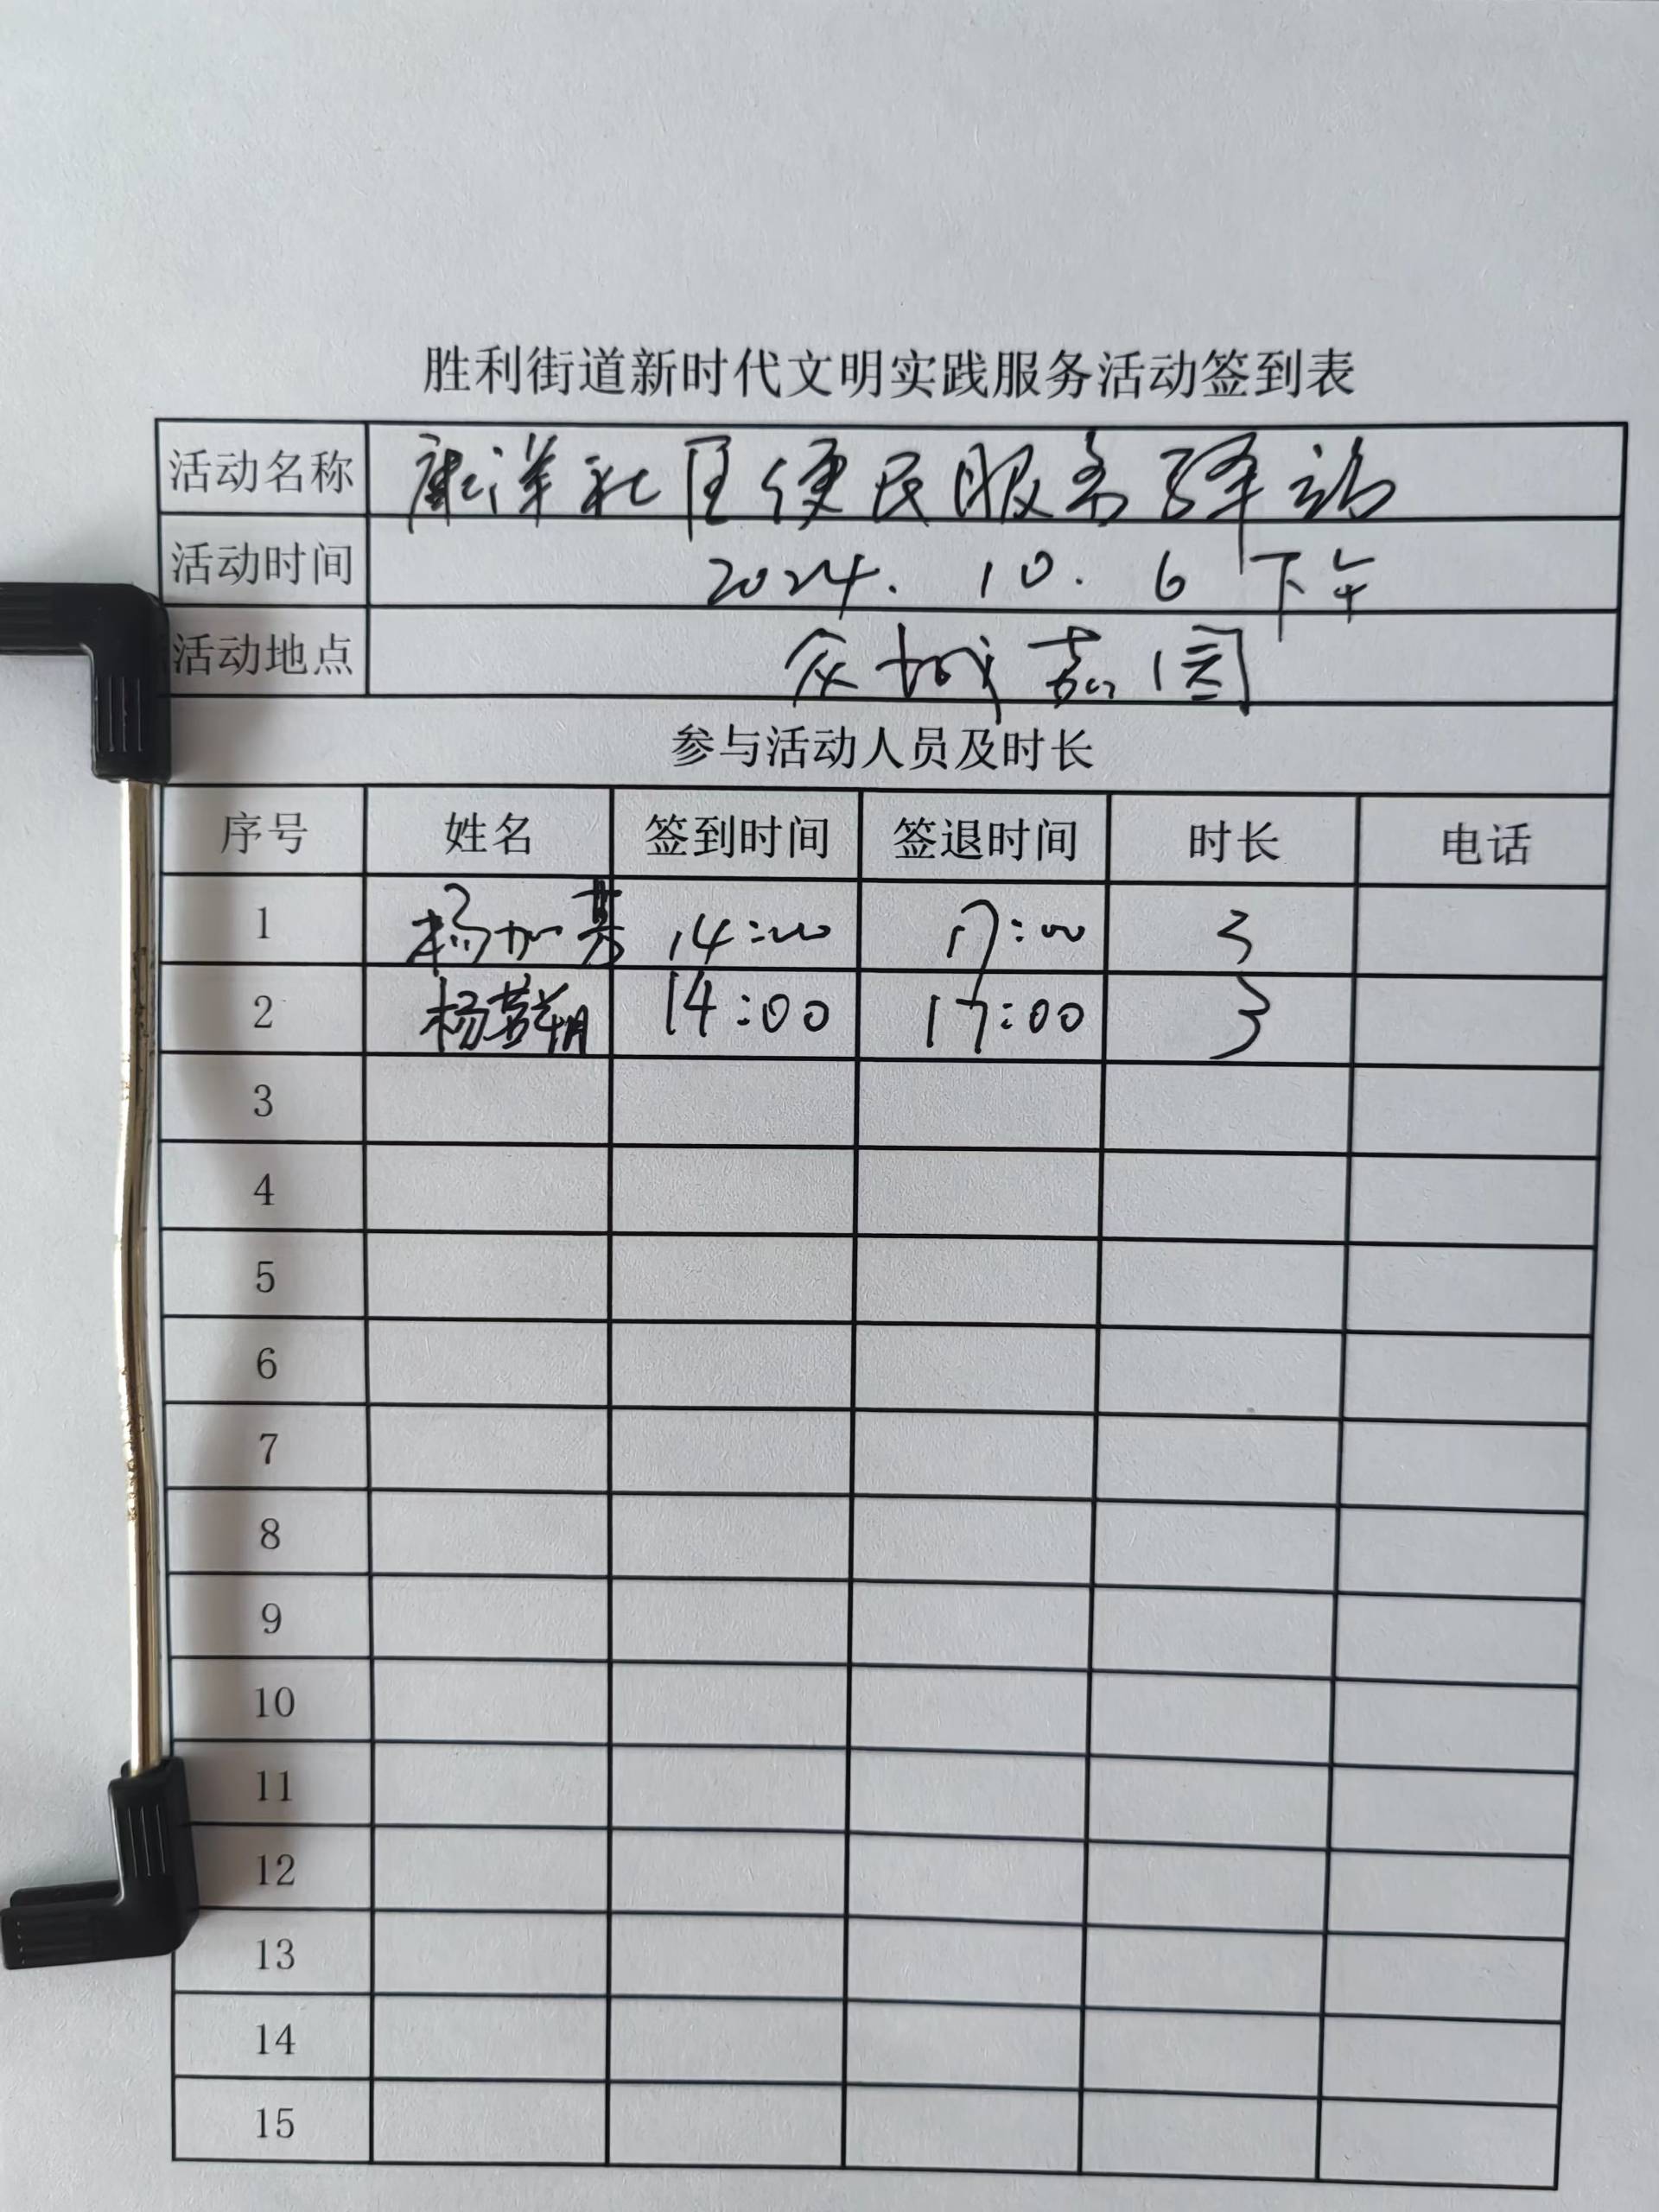 胜利街道新时代文明实践服务活动签到表
活动名称 康洋社区便民服务驿站
活动时间 2024. 10. 6 下午
活动地点 城嘉园
参与活动人员及时长
序号 姓名 签到时间 签退时间 时长 电话
1 杨加 14:00 17:00 3
2 杨 14:00 17:00 3
3
4
5
6
7
8
9
10
11
12
13
14
15